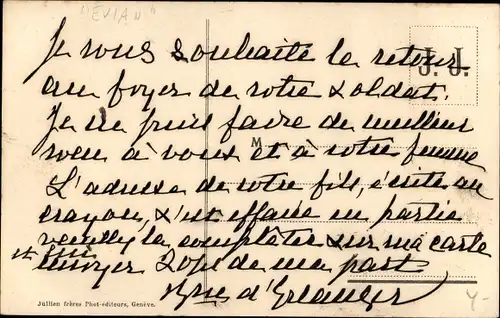 "EVIAN"
Je vous souhaite le retour
J. J.
au foyer de votre soldat.
Je ne puis faire de meilleur
M
voeu à vous et à votre femme
L'adresse de votre fils, écrite au
crayon, s'est effacée en partie
veuillez la compléter sur ma carte
et
envoyer de ma part
d'Erlanger
Jullien frères Phot-éditeurs, Genève.
Y-